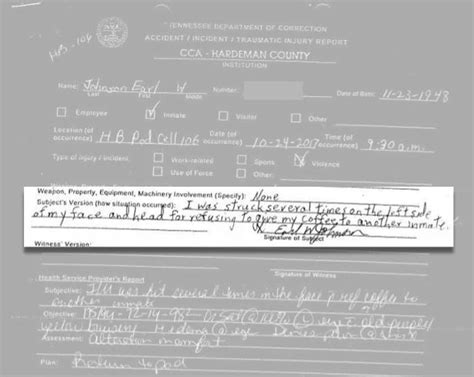 TENNESSEE DEPARTMENT OF CORRECTION
ACCIDENT / INCIDENT / TRAUMATIC INJURY REPORT
CCA - HARDEMAN COUNTY
INSTITUTION
HB-106
Name: Johnson Earl W Number: Date of Birth: 11-23-1948
Last First Middle
Employee Inmate Visitor Other
Location (of occurrence) HB Pod Cell 106 Date (of occurrence) 10-24-2017 Time (of occurrence) 9:30 a.m.
Type of injury / incident: Work-related Sports Violence
Use of Force Other:
Weapon, Property, Equipment, Machinery Involvement (Specify): None
Subject's Version (how situation occurred): I was struck several times on the left side
of my face and head for refusing to give my coffee to another inmate.
Signature of Subject
Witness' Version:
Signature of Witness
Health Service Provider's Report
Subjective: I/M was hit several times in the face p ref coffee to
another inmate
Objective:
Assessment: Alteration
Plan: Return to pod